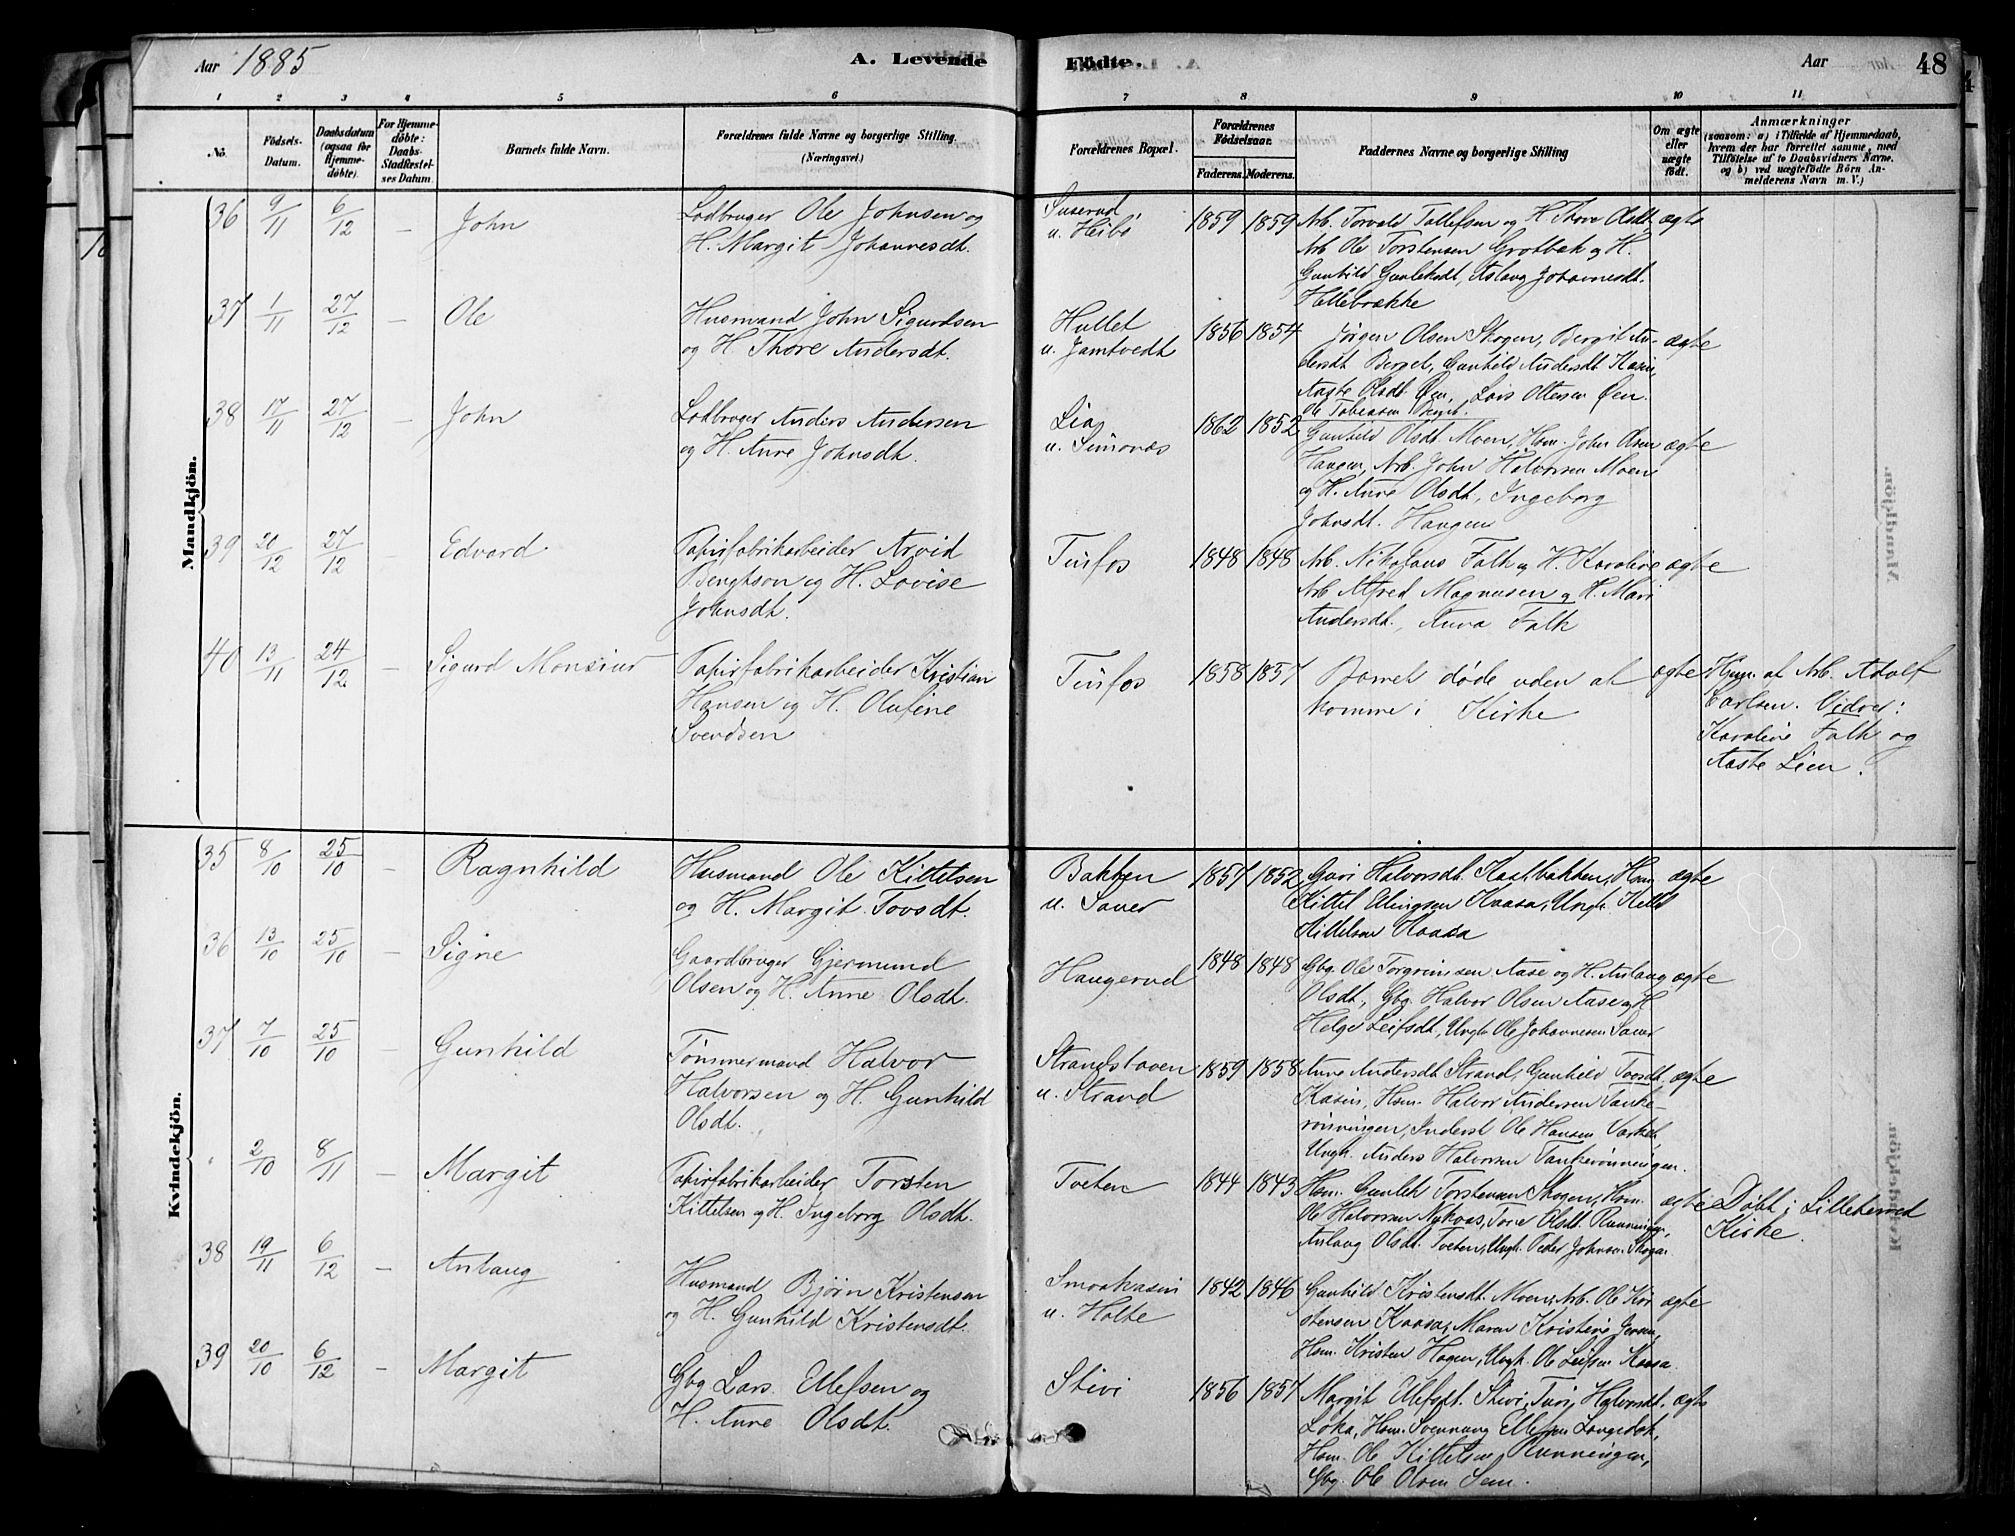 Aar 1885 A. Levende Fødte. Aar 48
1 2 3 4 5 6 7 8 9 10 11
No. Fødsels-Datum. Daabsdatum (ogsaa for Hjemmedøbte). For Hjemmedøbte: Daabs-Stadfæstelses Datum. Barnets fulde Navn. Forældrenes fulde Navne og borgerlige Stilling. (Næringsvei.) Forældrenes Bopæl. Forældrenes Fødselsaar. Faderens. Moderens. Faddernes Navne og borgerlige Stilling Om ægte eller uægte født. Anmærkninger (saasom: a) i Tilfælde af Hjemmedaab, hvem der har forrettet samme, med Tilføielse af to Daabsvidners Navne. og b) ved uægtefødte Børn Anmelderens Navn m. V.)
Mandkjøn.
36 9/11 6/12 – John
Lodbruger Ole Johnsen og
H. Margit Johannesdt.
Suserud
u. Heibø
1859 1859
Arb. Torvald Tollefsen og H. Thore Olsdt. ægte
Arb Ole Torstensen Grotbæk og H.
Gunhild Gunleksdt, Aslaug Johannesdt.
Hellebrække
37 1/11 27/12 – Ole
Husmand John Sigurdsen
og H. Thore Andersdt.
Hullet
u. Jamtvedt
1856 1854
Jørgen Olsen Skogen, Bergit An- ægte
dersdt Berget, Gunhild Andersdt Kasin,
Aaste Olsdt Øen, Lars Oltersen Øen.
Ole Tobiasen Berget.
38 17/11 27/12 – John
Lodbruger Anders Andersen
og H. Anne Johnsdt.
Lia
u. Simonæs
1862 1852
Gunhild Olsdt Moen, Hsm. John Olsen ægte
Haugen, Arb. John Halvorsen Moen
og H. Anne Olsdt, Ingeborg
Johnsdt. Haugen
39 20/12 27/12 – Edvard
Papirfabrikarbeider Arvid
Bengtson og H. Lovise
Johnsdt.
Tinfos
1848 1848
Arb. Nikolaus Falk og H. Karoline ægte
Arb Alfred Magnusen og H. Mari
Andersdt, Anna Falk
40 13/11 24/12 – Sigurd Monsius
Papirfabrikarbeider Kristian
Hansen og H. Olufine
Svendsen
Tinfos
1858 1857
Barnet døde uden at ægte
komme i Kirke
Hjem. af Arb. Adolf
Carlsen. Vidner:
Karoline Falk og
Aaste Lien.
Kvindekjøn.
35 8/10 25/10 – Ragnhild
Husmand Ole Kittelsen
og H. Margit Tovsdt.
Bakken
u. Sauer
1857 1852
Guri Halvorsdt. Kastbakken, Hsm. ægte
Kittel Elingsen Kaasa, Ungk. Kittel
Kittelsen Kaasa
36 13/10 25/10 – Signe
Gaardbruger Gjermund
Olsen og H. Anne Olsdt.
Haugerud
1848 1848
Gbg. Ole Torgrimsen Aase og H. Aslaug ægte
Olsdt, Gbg. Halvor Olsen Aase og H.
Helge Leifsdt, Ungk. Ole Johannesen Sauer
37 7/10 25/10 – Gunhild
Tømmermand Halvor
Halvorsen og H. Gunhild
Olsdt.
Strandstøven
u. Strand
1859 1858
Anne Andersdt Strand, Gunhild Tovsdt. ægte
Kasin, Hsm. Halvor Andersen Tanke-
rønningen, Inderst Ole Hansen
Ungk. Anders Halvorsen Tankerønningen.
" 2/10 8/11 – Margit
Papirfabrikarbeider Torsten
Kittelsen og H. Ingeborg Olsdt.
Tveten
1844 1843
Hsm. Gunlek Torstensen Skogen, Hsm. ægte
Ole Halvorsen Nykaas, Tone Olsdt Rønningen,
Aslaug Olsdt. Tveten, Ungk. Peder Johnsen Skogen.
Døbt i Lilleherred
Kirke.
38 19/11 6/12 – Aslaug
Husmand Bjørn Kristensen
og H. Gunhild Kristensdt.
Smaakasin
u. Holte
1842 1846
Gunhild Kristensdt. Moen, Arb. Ole Kri- ægte
stensen Kaasa, Maren Kristine Jensen,
Hsm. Kristen Hagen, Ungk. Ole Leifsen Kaasa.
39 20/10 6/12 – Margit
Gbg Lars Ellefsen og
H. Anne Olsdt.
Stivi
1856 1857
Margit Ellefsdt. Stivi, Turi Halvorsdt. ægte
Løka, Hsm. Svennung Ellefsen Langedok,
Hsm. Ole Kittelsen Rønningen,
Gbg. Ole Olsen Sem.